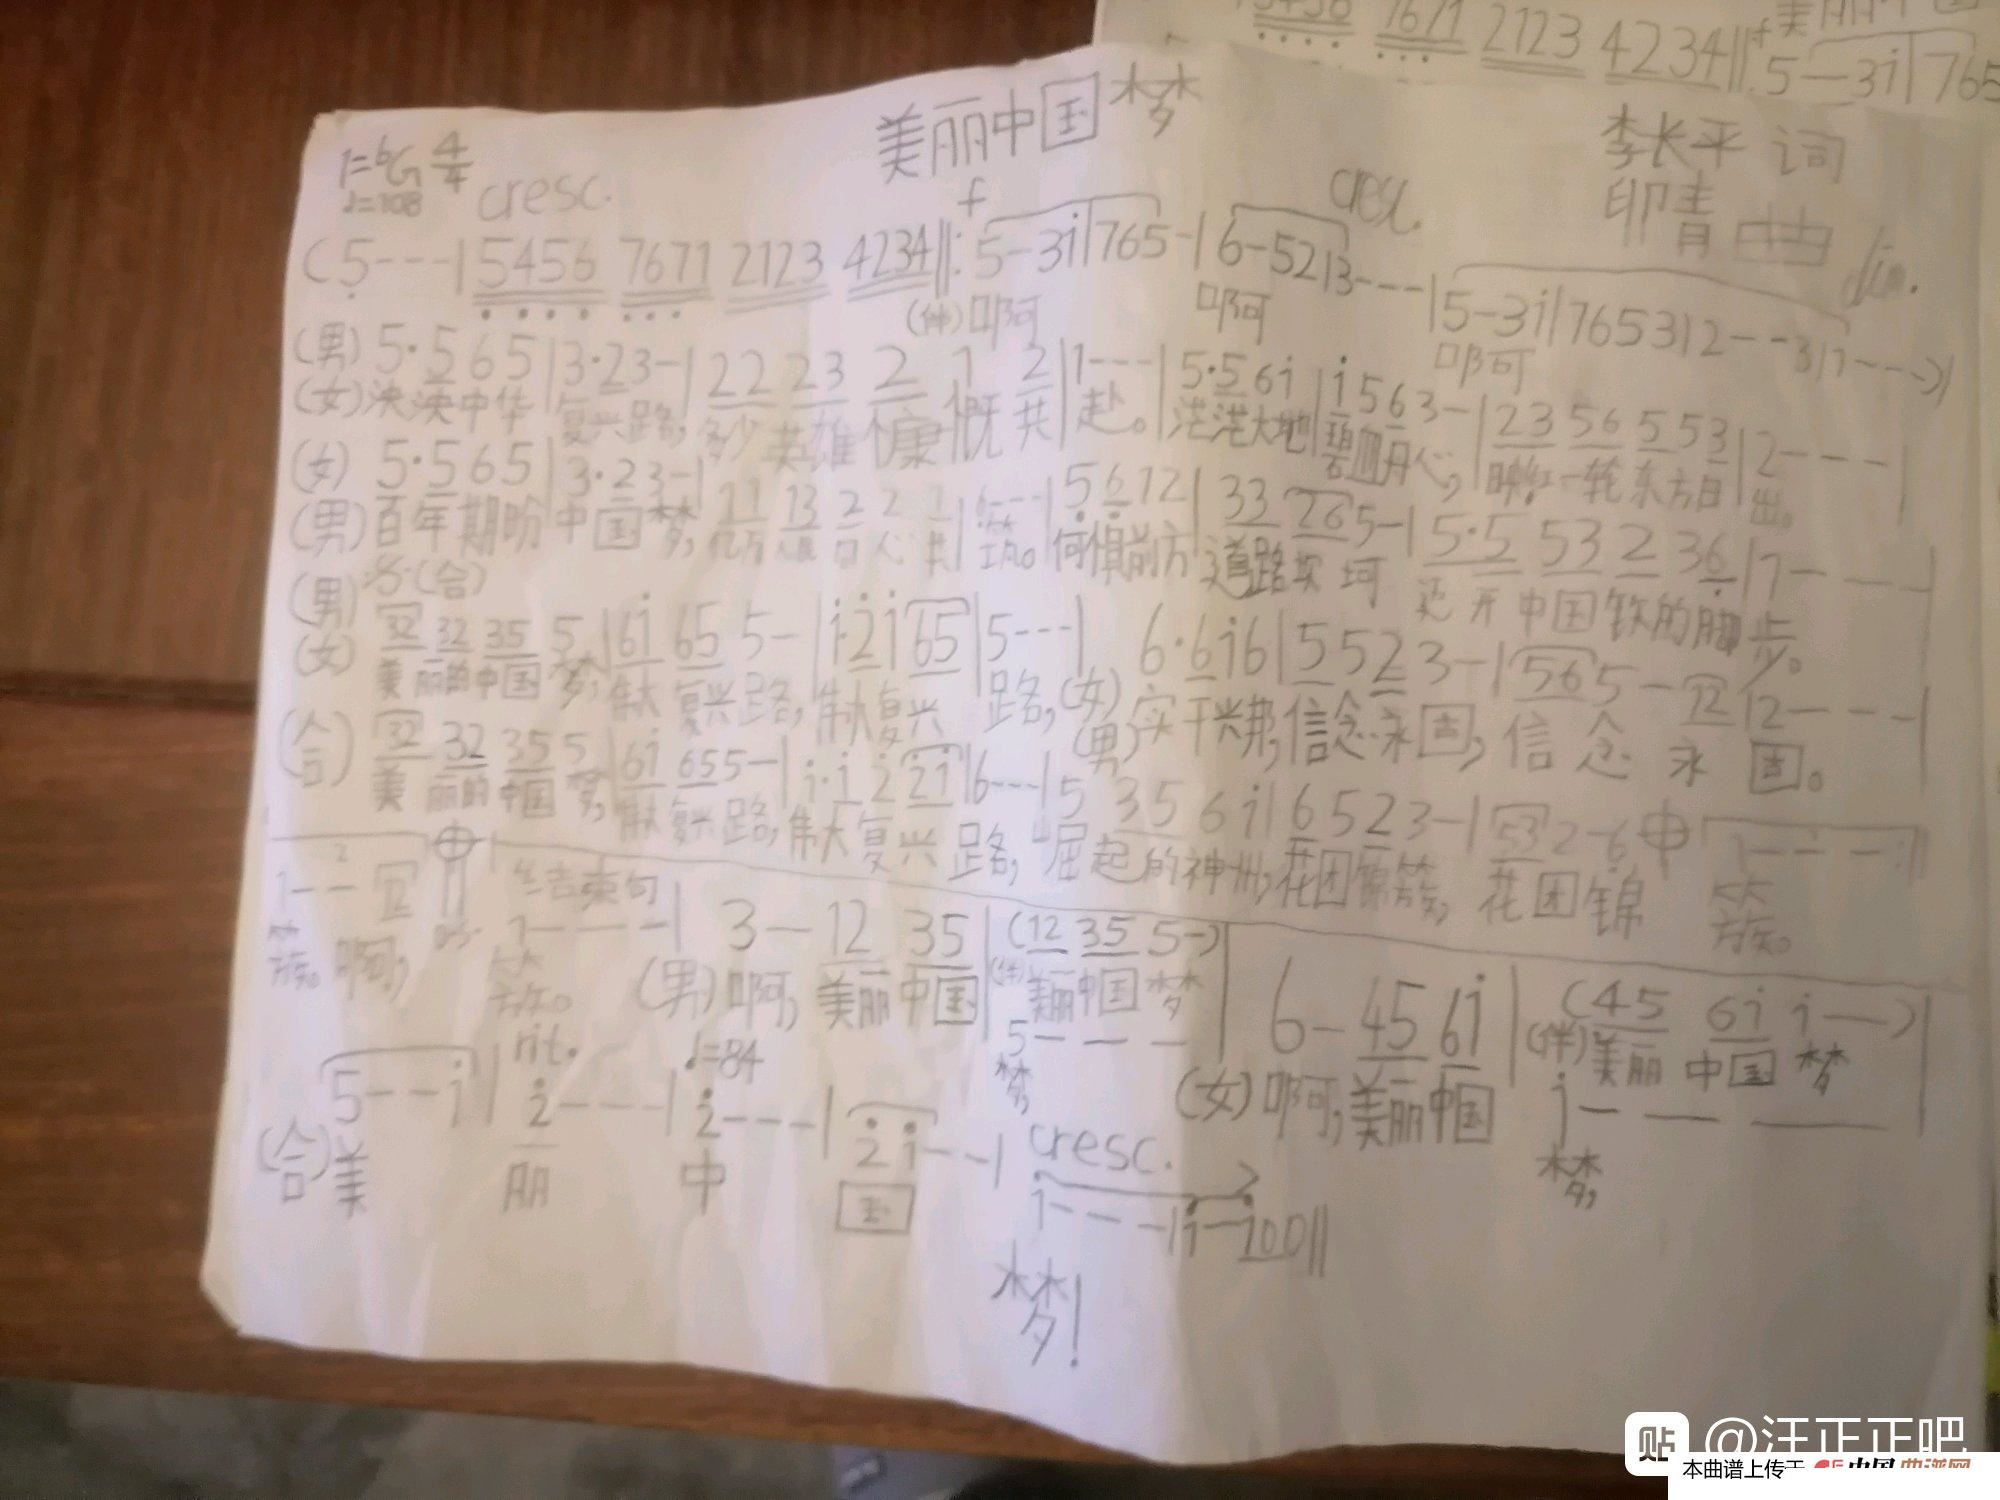 5456 7671 2123 4234‖
5—3i|765
美丽中国梦
李长平 词
印青 曲
1=bG 4/4
♩=108
cresc.
f
cresc.
dim.
(5---|5456 7671 2123 4234‖:5-3i|765-|6-521|3---|5-3i|76531|2--31|1---)|
(伴)啊 啊 啊
(男) 5·565|3·23-|22 23 2 1 2|1---|5·56i|i563-|23 56 5 53|2---|
(女) 泱泱中华 复兴路, 多少英雄慷慨共赴。 茫茫大地 碧血丹心, 映红一轮东方日出。
(女) 5·565|3·23-|11 13 2 2 1|6---|5612|33 26 5-|5·5 53 2 36|1---|
(男) 百年期盼 中国梦, 亿万人民 一心共筑。 何惧前方 道路坎坷 迈开中国铁的脚步。
(男) 𝄋(合)
(女) 32 32 35 5|6i 65 5-|i·2i65|5---|6·6i6|5523-|565-12|2---|
美丽的中国梦, 伟大复兴路, 伟大复兴 路,(女)(男)实干兴邦,信念永固, 信念永固。
(合) 32 32 35 5|6i 655-|i·i 2 2i|6---|5 35 6i|6523-|532-6 1---:‖
美丽的中国梦, 伟大复兴路, 伟大复兴路, 崛起的神州,花团锦簇, 花团锦簇。
1--12
簇。 啊,
结束句
1---|3-12 35|(12 35 5-)|6-45 6i|(45 6i i—)
簇。 (男)啊, 美丽中国 (伴)美丽中国梦 (女)啊,美丽中国 (伴)美丽 中国 梦
5———
梦,
i———
梦,
rit.
♩=84
cresc.
5--i|2---|2---|2i--|i---|i-i00‖
(合)美 丽 中 国 梦!
贴 @汪正正吧
本曲谱上传于 中国曲谱网